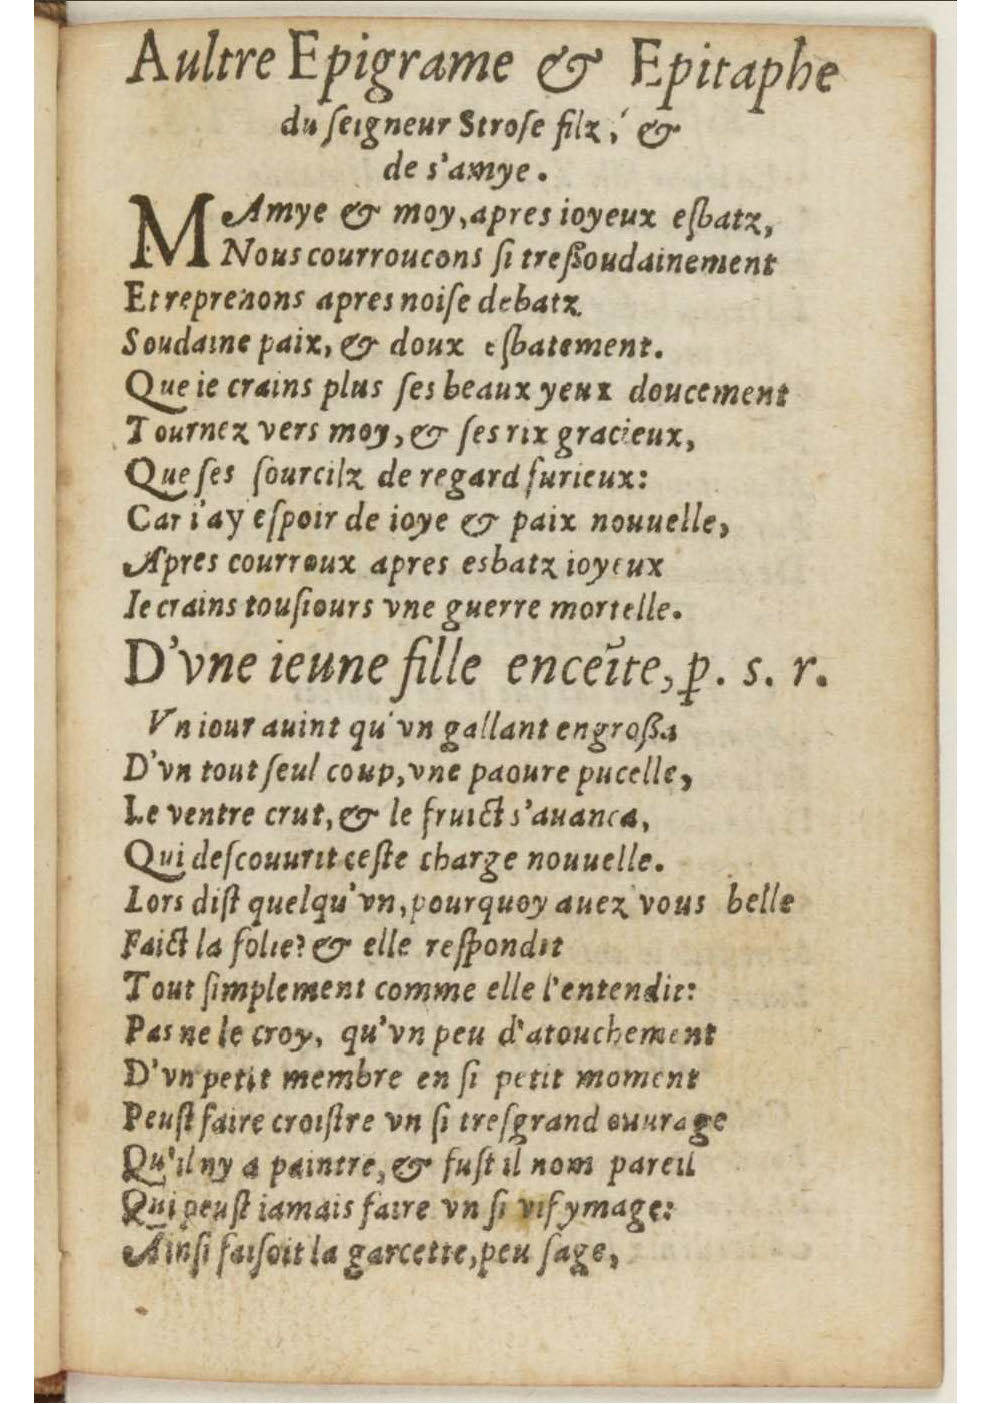 Aultre Epigrame & Epitaphe
du ſeigneur Stroſe filz, &
de s'amye.
MAmye & moy, apres ioyeux eſbatz,
Nous courroucons ſi treſſoudainement
Et reprenons apres noiſe debatz
Soudaine paix, & doux eſbatement.
Que ie crains plus ſes beaux yeux doucement
Tournez vers moy, & ſes rix gracieux,
Que ſes ſourcilz de regard furieux:
Car i'ay eſpoir de ioye & paix nouuelle,
Apres courroux apres esbatz ioyeux
Ie crains touſiours vne guerre mortelle.
D'vne ieune fille enceīte, ꝑ. s. r.
Vn iour auint qu'vn gallant engroſſa
D'vn tout ſeul coup, vne paoure pucelle,
Le ventre crut, & le fruict s'auanca,
Qui deſcouurit ceſte charge nouuelle.
Lors diſt quelqu'vn, pourquoy auez vous belle
Faict la folie? & elle reſpondit
Tout ſimplement comme elle l'entendit:
Pas ne le croy, qu'vn peu d'atouchement
D'vn petit membre en ſi petit moment
Peuſt faire croiſtre vn ſi treſgrand ouurage
Qu'il ny a paintre, & fuſt il nom pareil
Qui peuſt iamais faire vn ſi vif ymage:
Ainſi faiſoit la garcette, peu ſage,